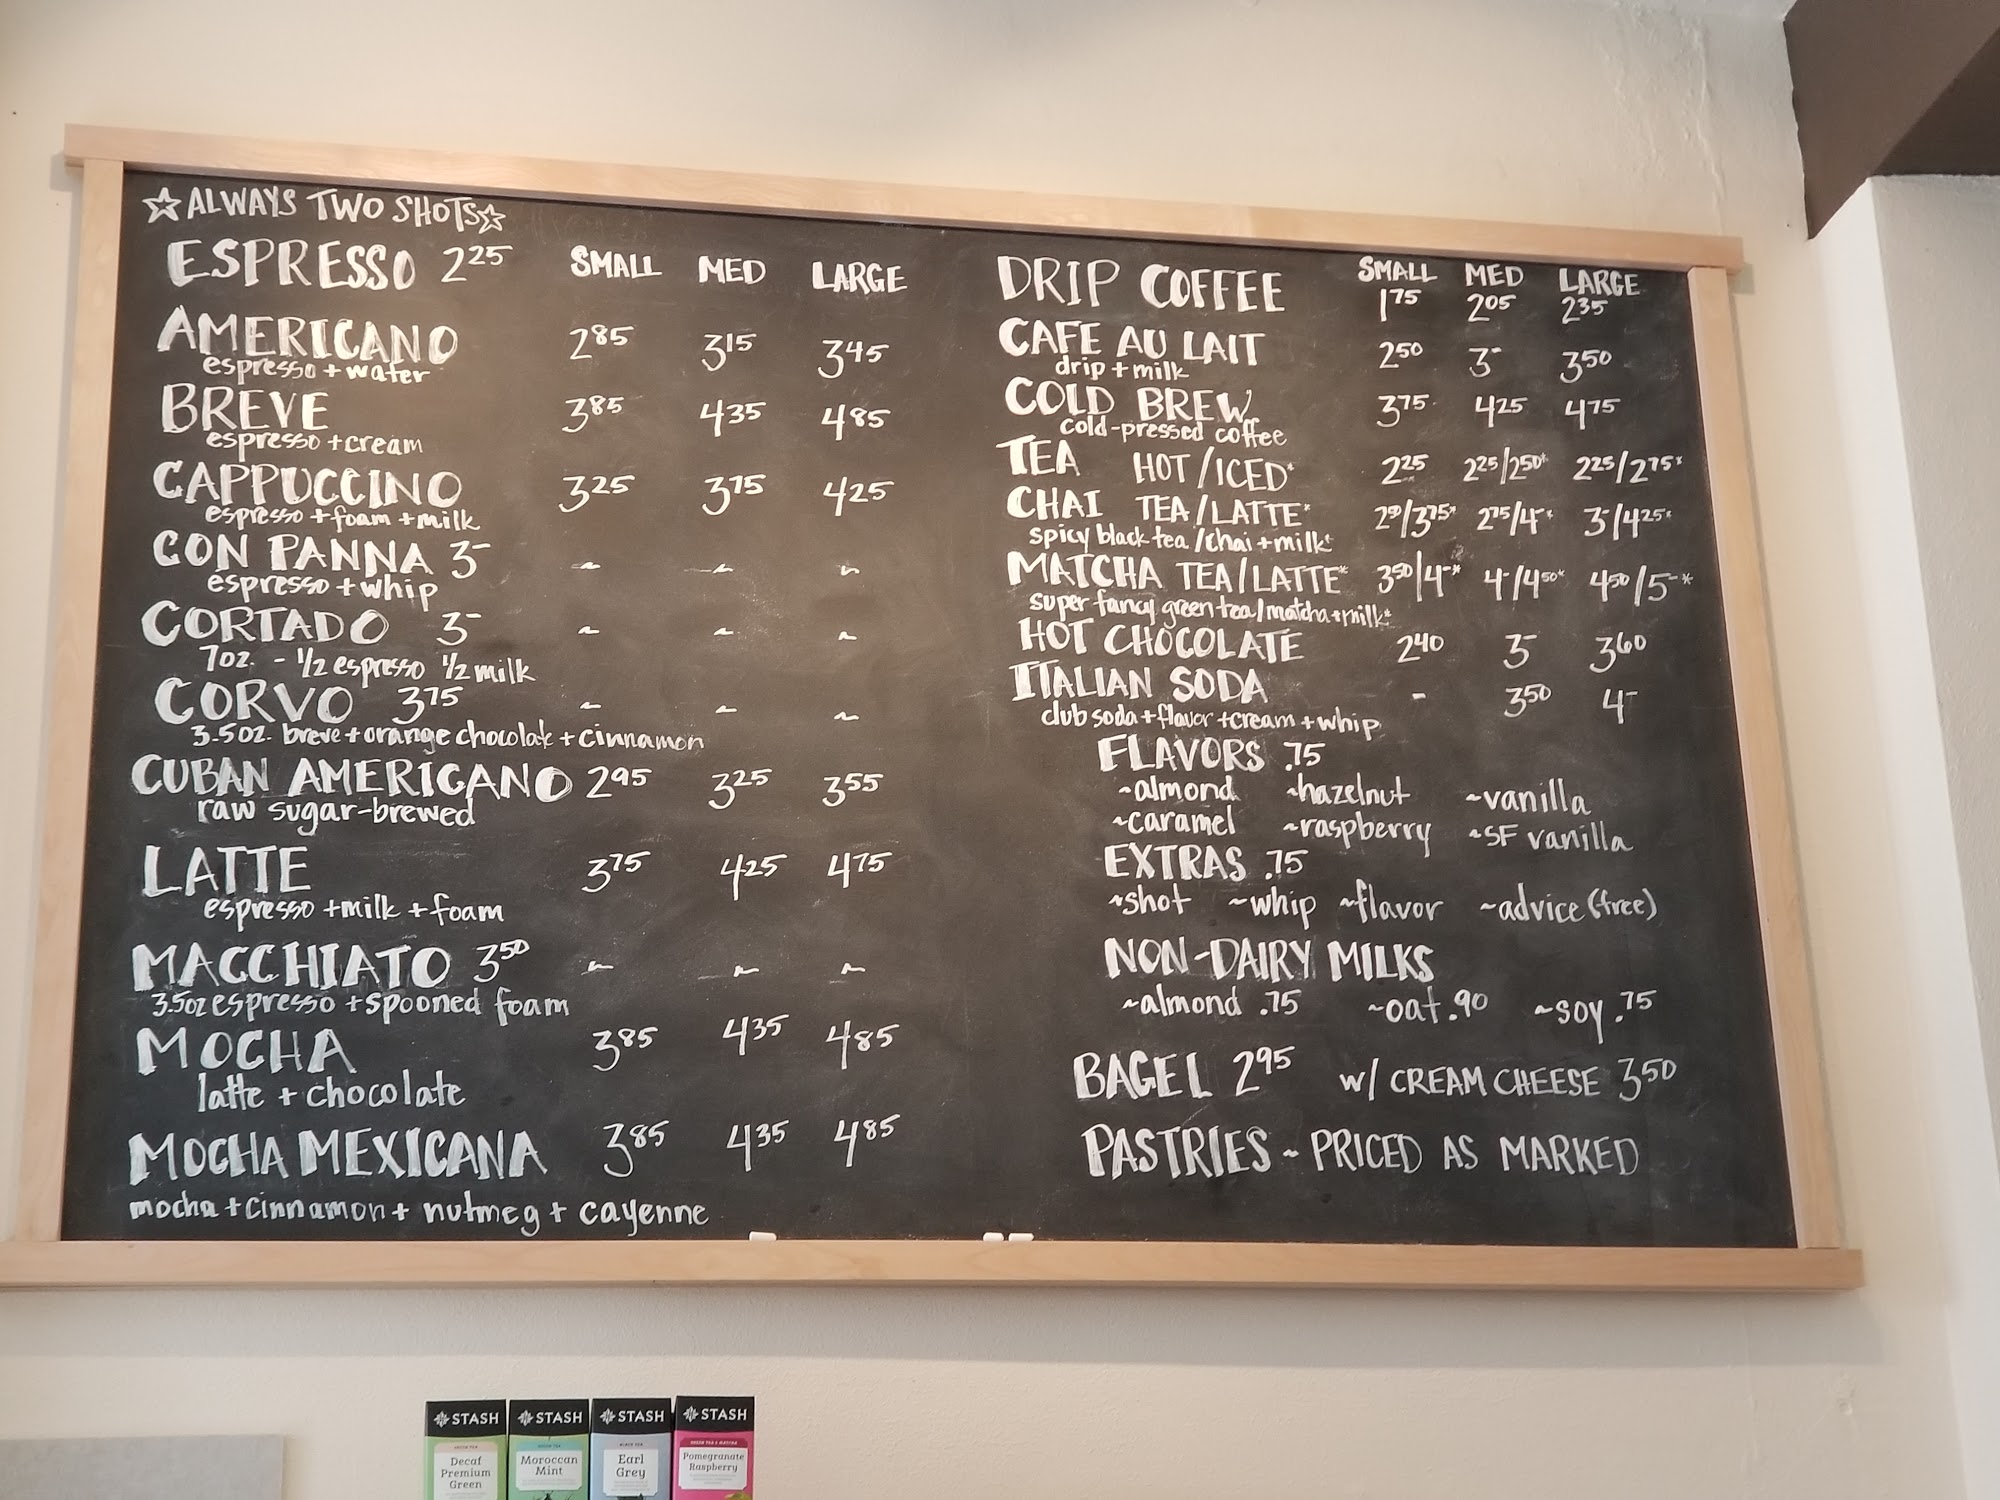 ☆ALWAYS TWO SHOTS☆
ESPRESSO 2.25 SMALL MED LARGE
AMERICANO 2.85 3.15 3.45
espresso + water
BREVE 3.85 4.35 4.85
espresso + cream
CAPPUCCINO 3.25 3.75 4.25
espresso + foam + milk
CON PANNA 3- ~ ~ ~
espresso + whip
CORTADO 3- ~ ~ ~
7oz. - 1/2 espresso 1/2 milk
CORVO 3.75 ~ ~ ~
3.5oz. breve + orange chocolate + cinnamon
CUBAN AMERICANO 2.95 3.25 3.55
raw sugar-brewed
LATTE 3.75 4.25 4.75
espresso + milk + foam
MACCHIATO 3.50 ~ ~ ~
3.5oz espresso + spooned foam
MOCHA 3.85 4.35 4.85
latte + chocolate
MOCHA MEXICANA 3.85 4.35 4.85
mocha + cinnamon + nutmeg + cayenne
SMALL MED LARGE
DRIP COFFEE 1.75 2.05 2.35
CAFE AU LAIT 2.50 3- 3.50
drip + milk
COLD BREW 3.75 4.25 4.75
cold-pressed coffee
TEA HOT/ICED* 2.25 2.25/2.50* 2.25/2.75*
CHAI TEA/LATTE* 2.50/3.75* 2.75/4-* 3-/4.25*
spicy black tea/chai + milk*
MATCHA TEA/LATTE* 3.50/4-* 4-/4.50* 4.50/5-*
super fancy green tea/matcha + milk*
HOT CHOCOLATE 2.40 3- 3.60
ITALIAN SODA - 3.50 4-
club soda + flavor + cream + whip
FLAVORS .75
~almond ~hazelnut ~vanilla
~caramel ~raspberry ~SF vanilla
EXTRAS .75
~shot ~whip ~flavor ~advice (free)
NON-DAIRY MILKS
~almond .75 ~oat .90 ~soy .75
BAGEL 2.95 w/ CREAM CHEESE 3.50
PASTRIES ~ PRICED AS MARKED
STASH STASH STASH STASH
GREEN TEA
Decaf
Premium
Green
GREEN TEA
Moroccan
Mint
BLACK TEA
Earl
Grey
GREEN TEA & MATCHA
Pomegranate
Raspberry